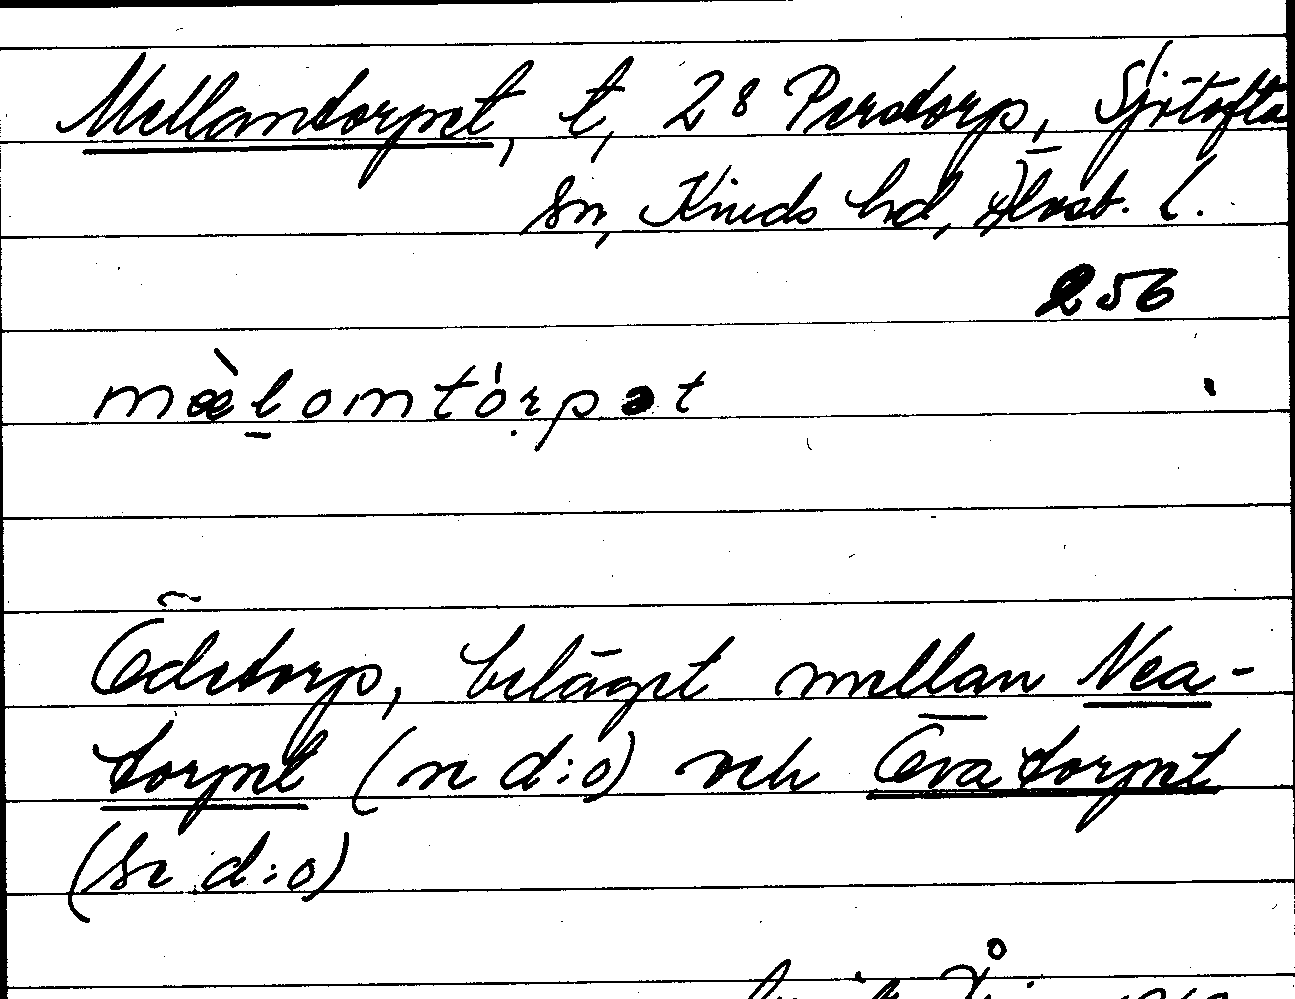 Mellantorpet, t, 28 Perstorp, Sjötofta
sn, Kinds hd, Älvsb. l.
256
mæ̀lomtórpət
Ödetorp, beläget mellan Nea-
torpet (se d:o) och Övatorpet
(se d:o)